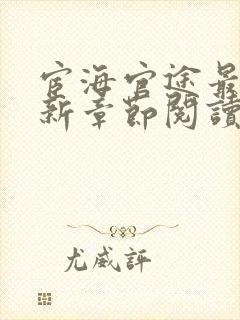 宦海官途最
新章節閱讀
尤威評